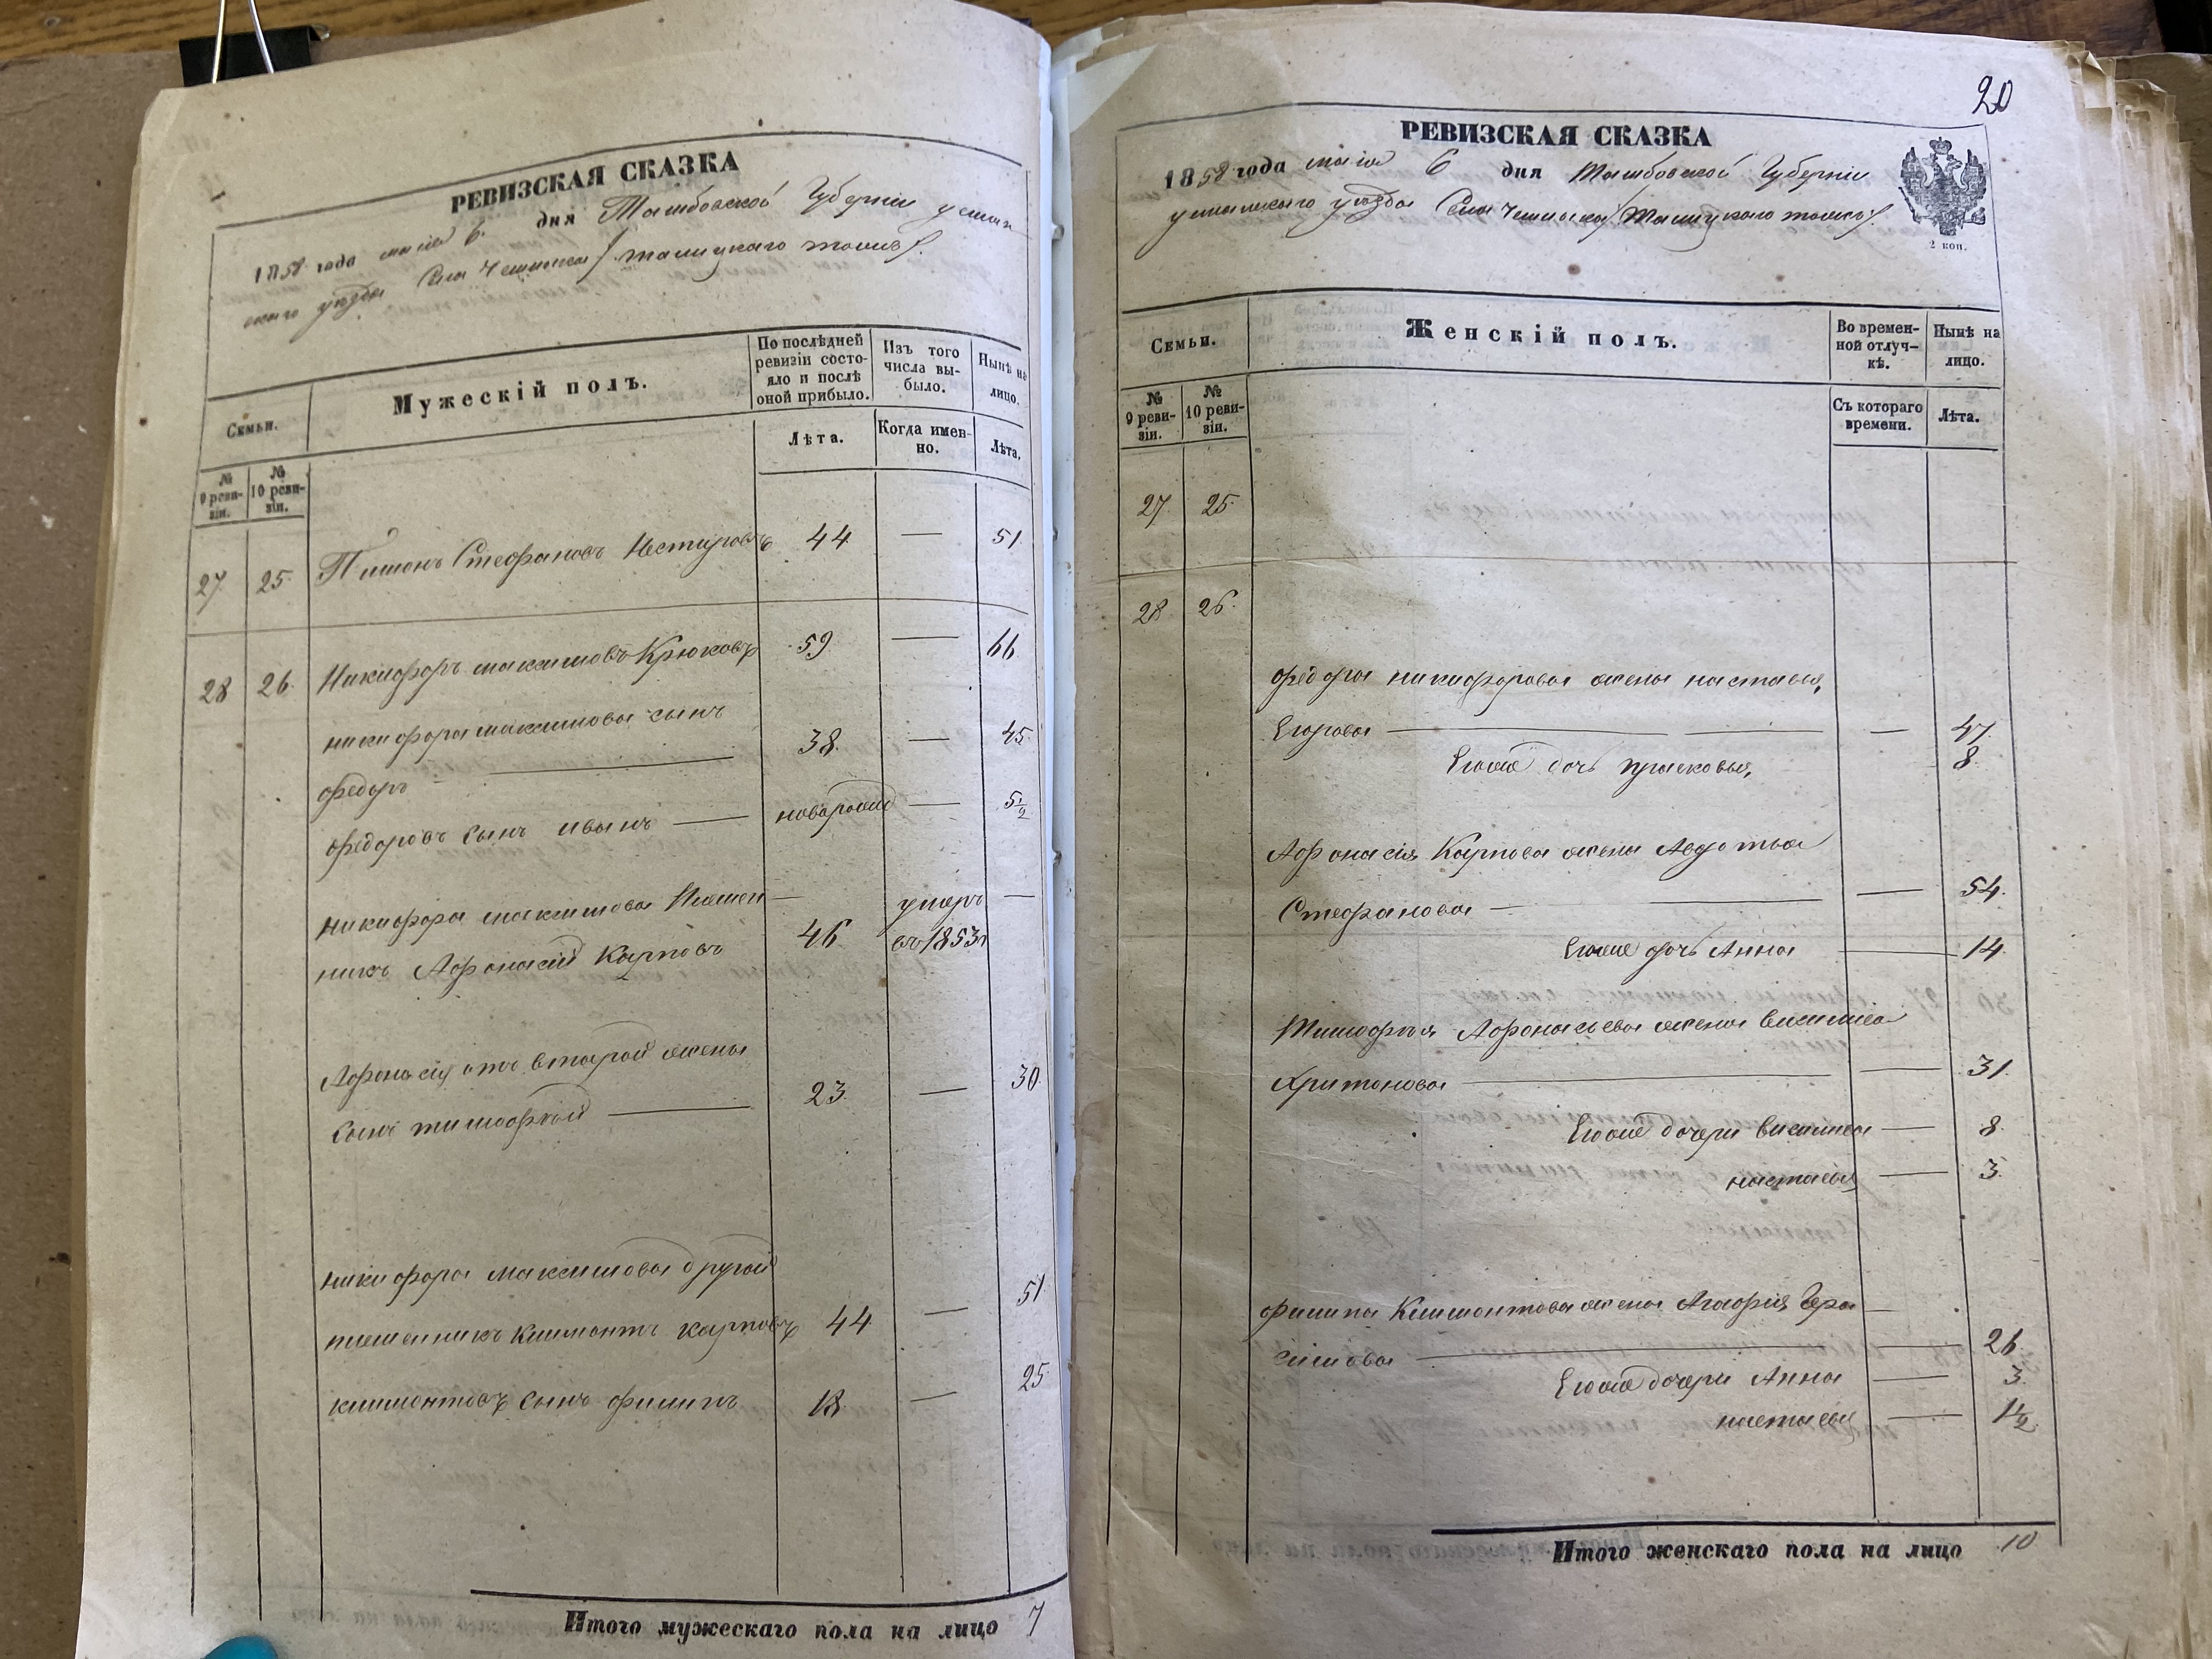 РЕВИЗСКАЯ СКАЗКА
1858 года маія 6. дня Тамбовской Губерніи усман
скаго уезда Села Чемлыка / талицкаго тожъ /.
Семьи.
Мужескій полъ.
По послѣдней ревизіи состо-
яло и послѣ оной прибыло.
Изъ того числа вы-
было.
Нынѣ на лицо.
№ 9 реви-
зіи.
№ 10 реви-
зіи.
Лѣта.
Когда имен-
но.
Лѣта.
27 25. Пимонъ Стефановъ Нестеровъ 44 — 51
28 26. Никифоръ максимовъ Крюковъ 59. — 66.
никифора максимова сынъ
федоръ — 38. — 45.
федоровъ сынъ иванъ — новорожд — 5 1/2
никифора максимова Племен — умеръ —
никъ Афонасій Карповъ 46 въ 1853 г
Афонасія отъ второй жены
сынъ тимофей — 23. — 30.
никифора максимова другой
племенникъ климонтъ карповъ 44 — 51
климонтовъ сынъ филипъ 18. — 25
Итого мужескаго пола на лицо 7
20
РЕВИЗСКАЯ СКАЗКА
1858 года маія 6 дня Тамбовской Губерніи
усманскаго уезда Села Чемлыка / Талицкаго тожъ /.
2 коп.
Семьи.
Женскій полъ.
Во времен-
ной отлуч-
кѣ.
Нынѣ на лицо.
№ 9 реви-
зіи.
№ 10 реви-
зіи.
Съ котораго времени.
Лѣта.
27. 25.
28 26.
федора никифорова жена настасья,
Егорова — — 47.
Егоже дочь прасковья, 8.
Афонасія Карпова жена Авдотья
Стефанова — — 54.
Егоже дочь Анна — 14.
Тимофея Афонасьева жена василиса
Харитонова — — 31.
Егоже дочери василиса — 8.
настасья — 3.
филипа Климонтова жена Агафія Гера —
симова — — 26.
Егоже дочери Анна — 3.
настасья — 1 1/2.
Итого женскаго пола на лицо 10